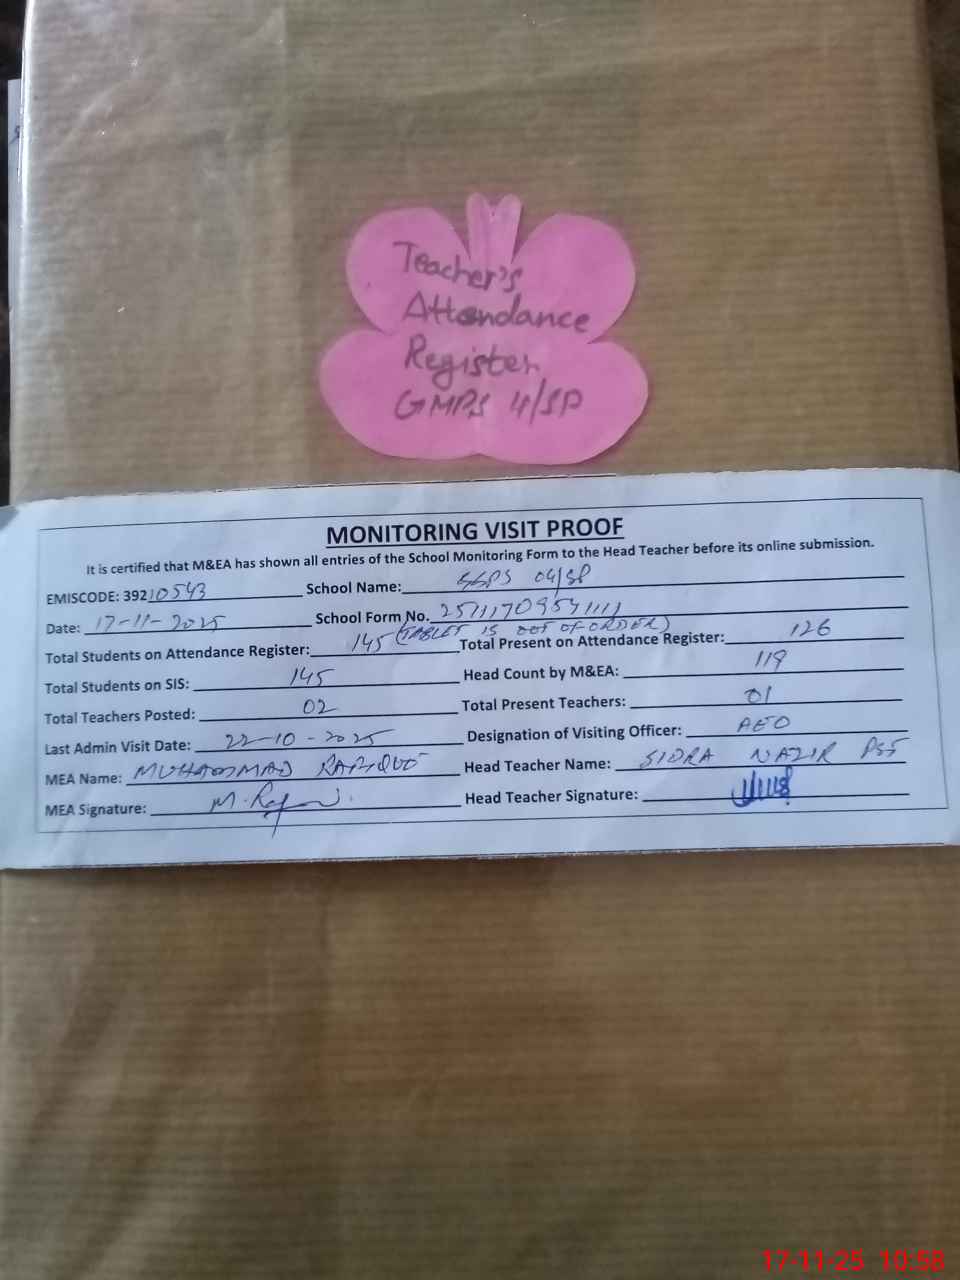 Teacher's
Attendance
Register
GMPS 4/SP
MONITORING VISIT PROOF
It is certified that M&EA has shown all entries of the School Monitoring Form to the Head Teacher before its online submission.
EMISCODE: 39210543 School Name: GGPS 04/SP
Date: 17-11-2025 School Form No.
(TABLET IS OUT OF ORDER)
Total Students on Attendance Register: 145 Total Present on Attendance Register: 126
Total Students on SIS: 145 Head Count by M&EA: 119
Total Teachers Posted: 02 Total Present Teachers: 01
Last Admin Visit Date: 22-10-2025 Designation of Visiting Officer: AEO
MEA Name: MUHAMMAD RAFIQUE Head Teacher Name: SIDRA NAZIR PST
MEA Signature: Head Teacher Signature:
17-11-25 10:58